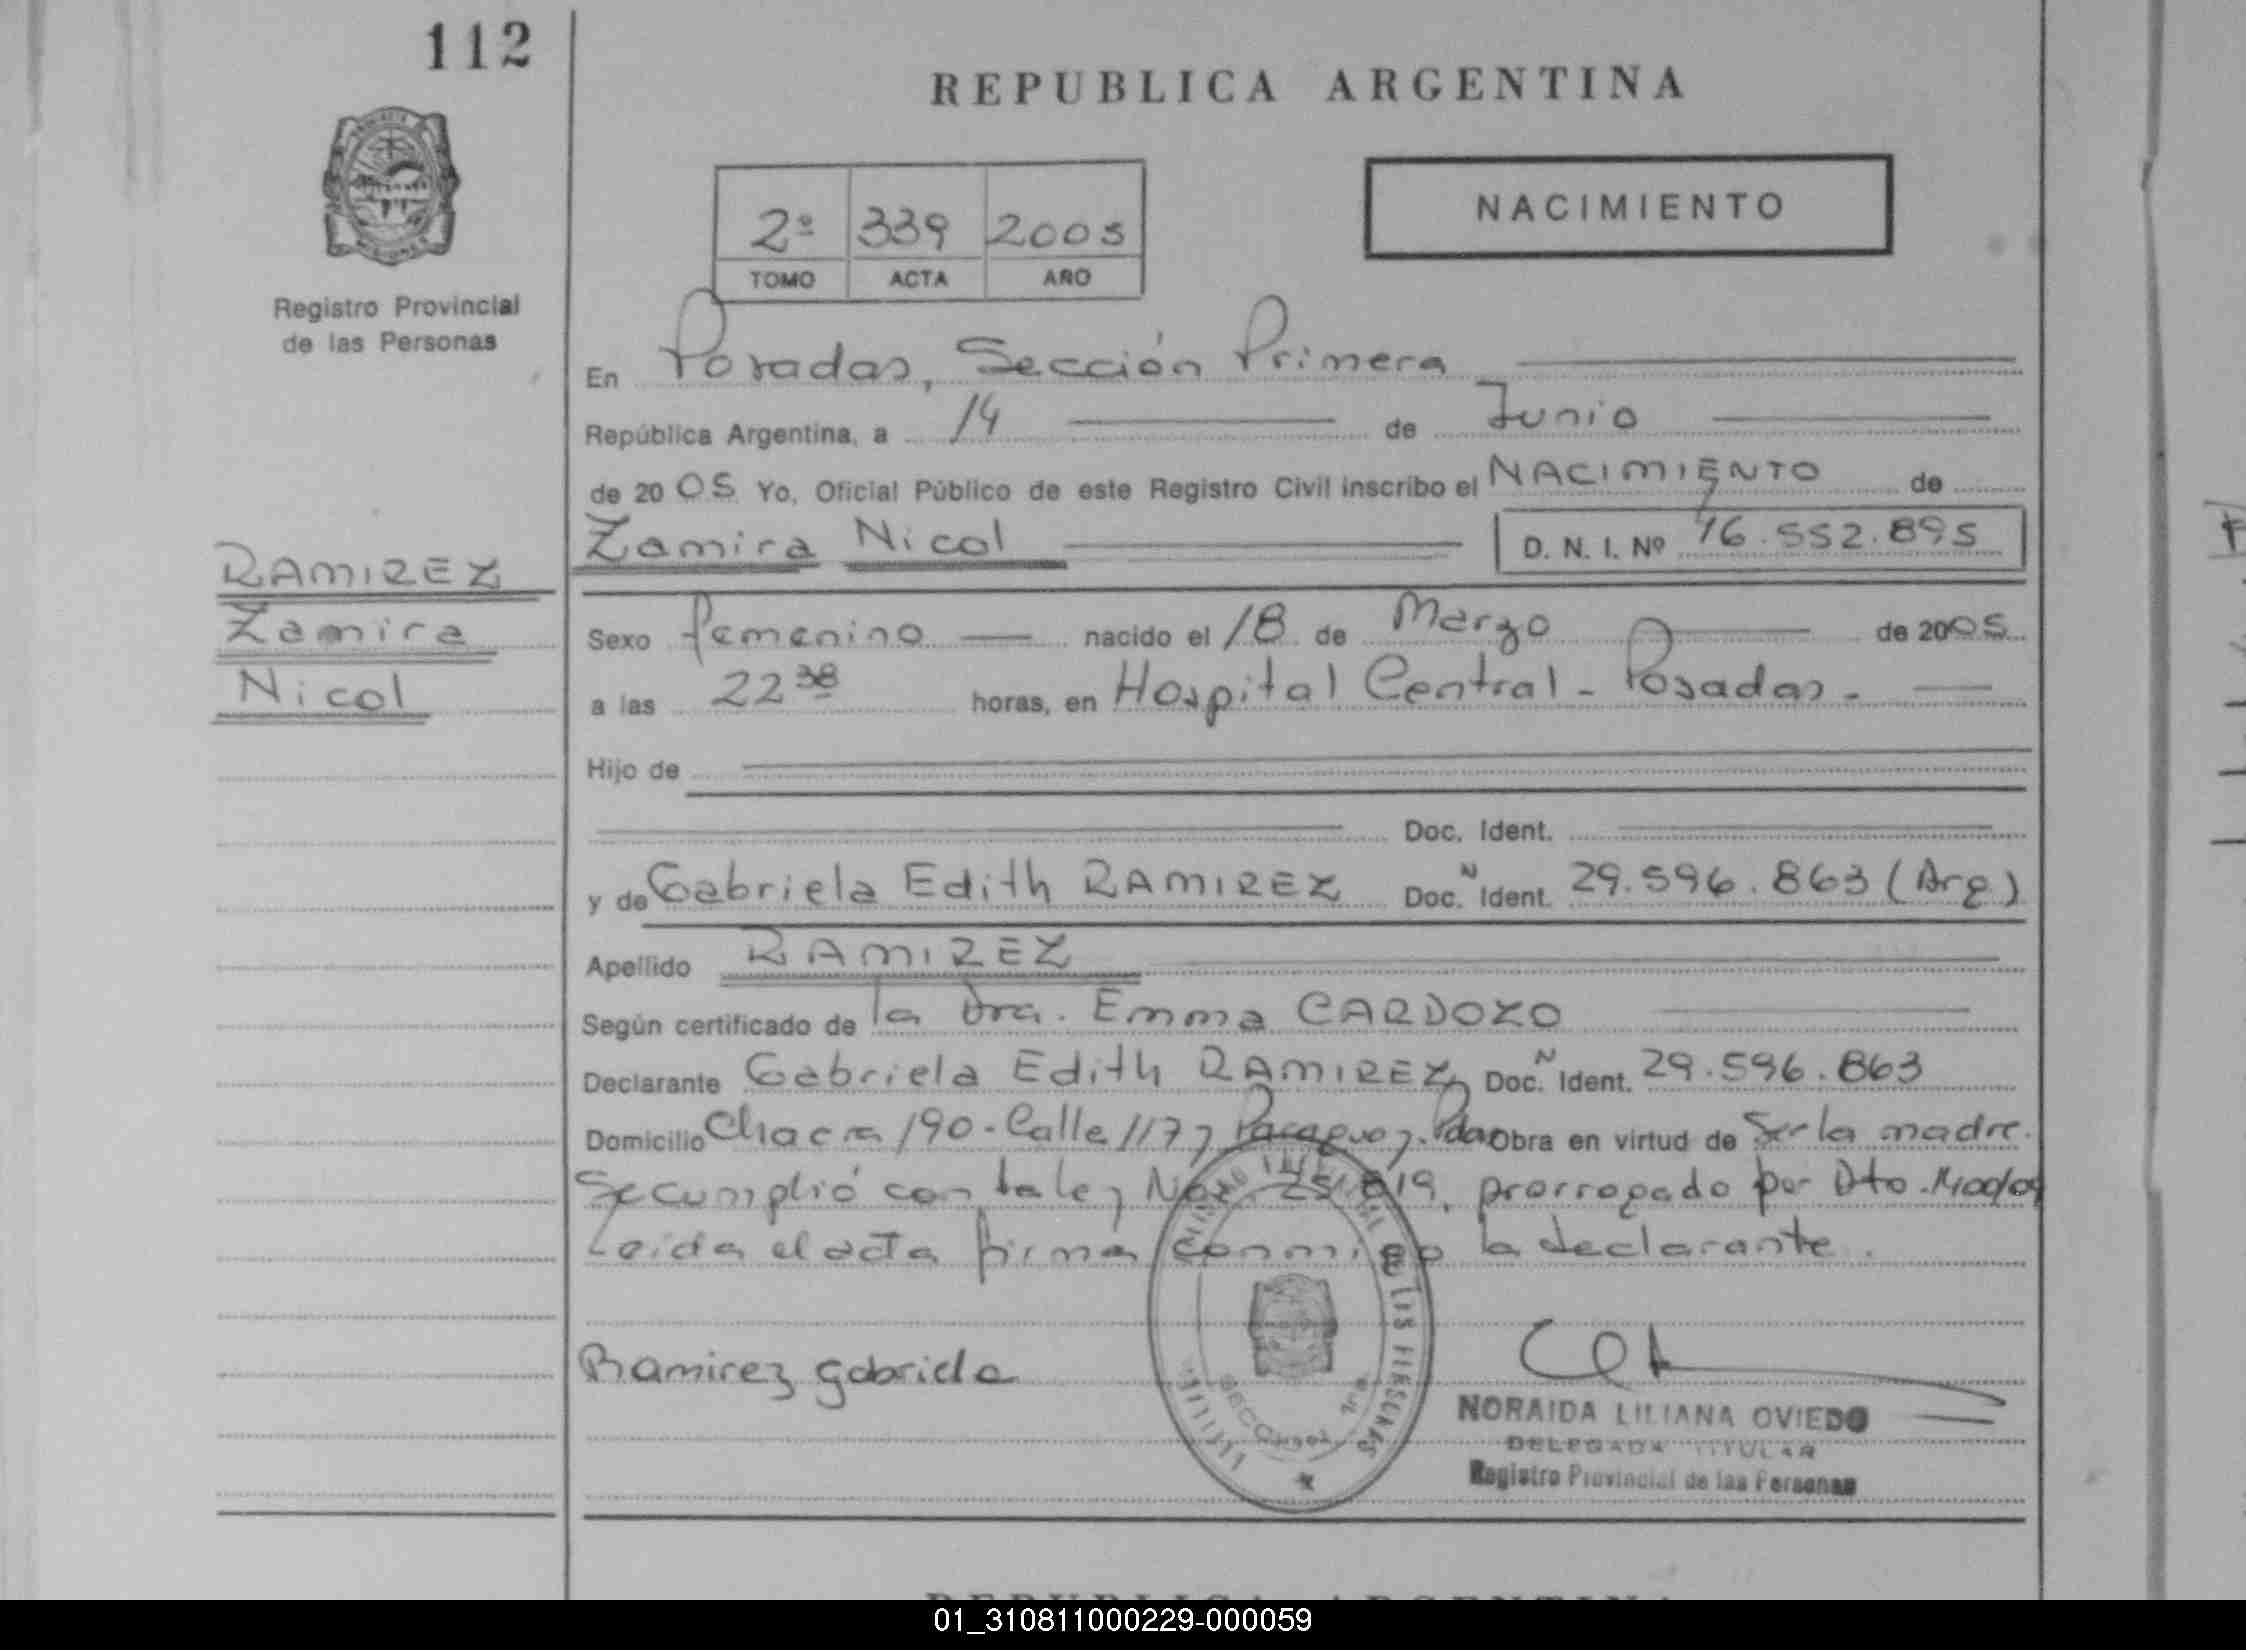 112
REPUBLICA ARGENTINA
NACIMIENTO
2º 339 2005
TOMO ACTA AÑO
Registro Provincial
de las Personas
En Posadas, Sección Primera
República Argentina, a 14 de Junio
de 20 05 Yo, Oficial Público de este Registro Civil inscribo el NACIMIENTO de
Zamira Nicol D. N. I. Nº 46.552.895
RAMIREZ
Zamira
Nicol
Sexo femenino nacido el 18 de Marzo de 2005
a las 22 38 horas, en Hospital Central - Posadas -
Hijo de
Doc. Ident.
y de Gabriela Edith RAMIREZ Doc. N Ident. 29.596.863 (Arg)
Apellido RAMIREZ
Según certificado de la Dra. Emma CARDOZO
Declarante Gabriela Edith RAMIREZ Doc. N Ident. 29.596.863
Domicilio Chacra 190 - Calle 117 y Paraguay. Pdas Obra en virtud de Ser la madre.
Se cumplió con la ley Nac. 25.819, prorrogado por Dto.
Leída el acta firma conmigo la declarante.
Ramirez gabriela
NORAIDA LILIANA OVIEDO
DELEGADA TITULAR
Registro Provincial de las Personas
01_310811000229-000059